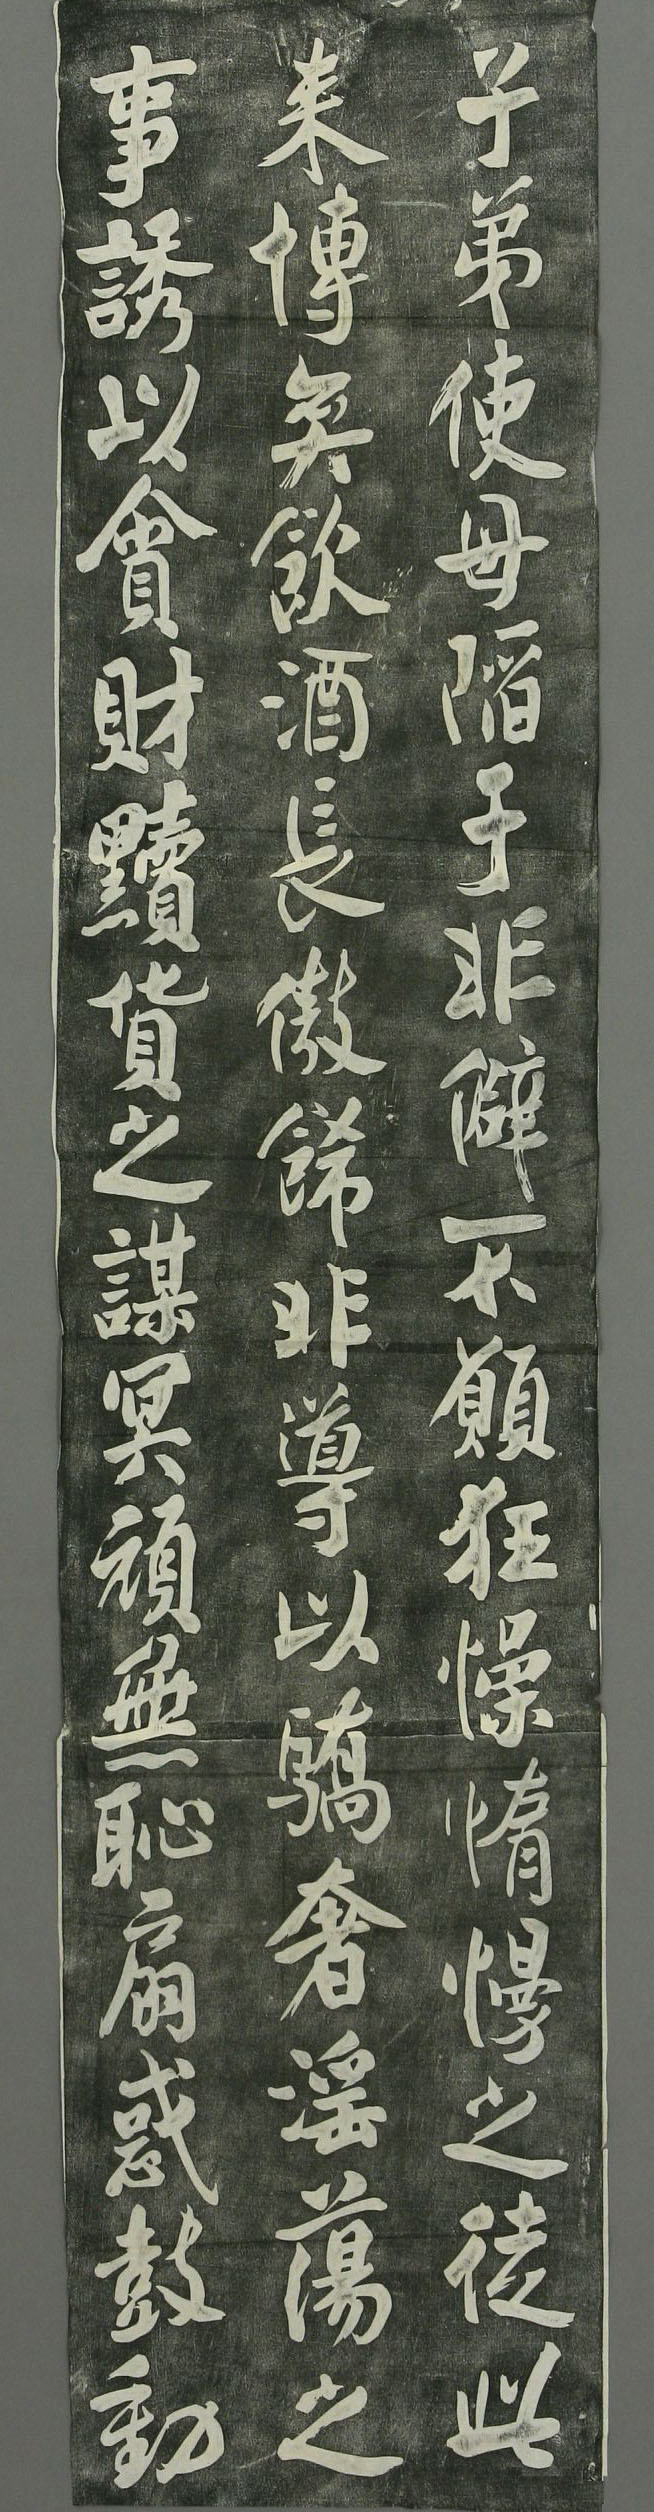 子弟使毋陷于非僻不願狂懆惰慢之徒此
来博奕飲酒長傲餙非導以驕奢淫蕩之
事誘以貪財黷貨之謀冥頑無恥扇惑鼓動